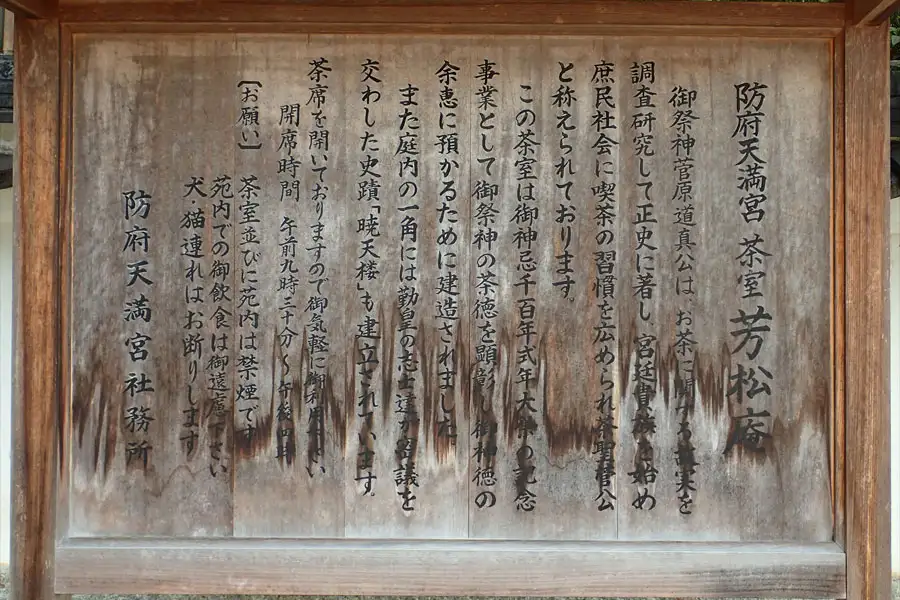 防府天満宮 茶室 芳松庵
御祭神菅原道真公は、お茶に関する故実を
調査研究して正史に著し、宮廷貴族を始め
庶民社会に喫茶の習慣を広められ茶聖菅公
と称えられております。
この茶室は御神忌千百年式年大祭の記念
事業として御祭神の茶徳を顕彰し御神徳の
余恵に預かるために建造されました。
また庭内の一角には勤皇の志士達が密議を
交わした史蹟「暁天楼」も建立されています。
茶席を開いておりますので御気軽に御利用下さい
開席時間 午前九時三十分~午後四時
〔お願い〕 茶室並びに苑内は禁煙です
苑内での御飲食は御遠慮下さい
犬・猫連れはお断りします
防府天満宮社務所